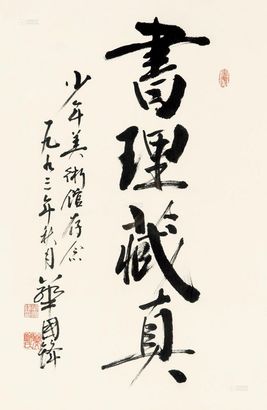 書理藏真
少年美術館存念
一九九三年秋月
華國鋒